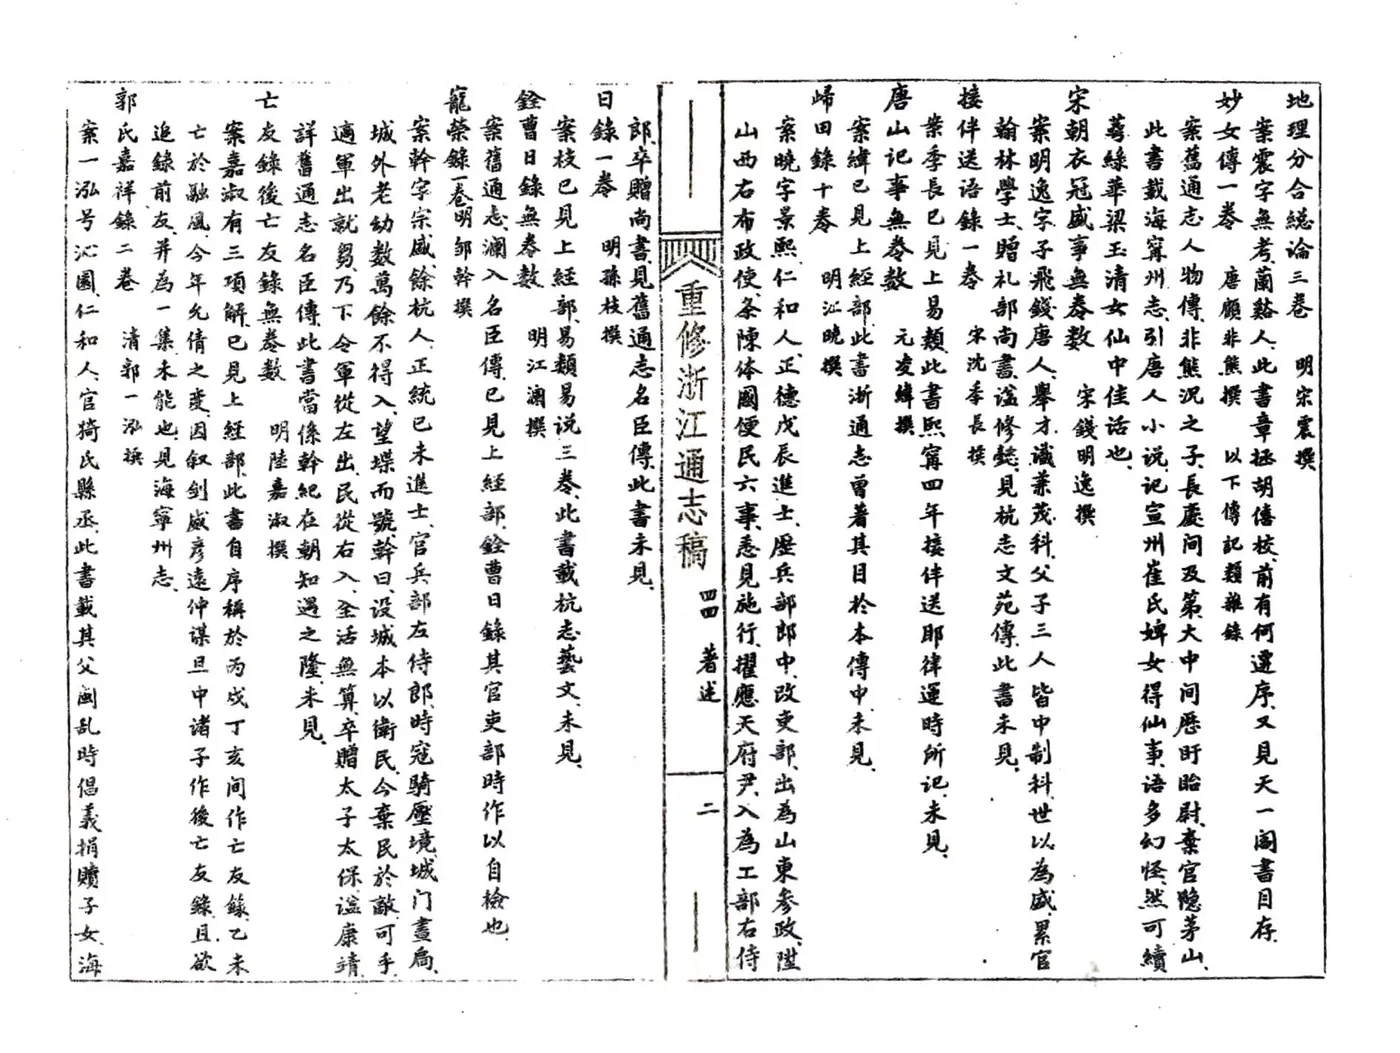 地理分合總論三卷　明宋震撰
案震字無考蘭谿人、此書章拯胡僖校、前有何遷序、又見天一閣書目存、
妙女傳一卷　唐顧非熊撰　以下傳記類雜錄
案舊通志人物傳、非熊況之子、長慶间及第、大中间歷盱眙尉、棄官隐茅山、
此書載海寧州志、引唐人小说、记宣州崔氏婢女得仙事、语多幻怪、然可續
萼綠華梁玉清女仙中佳话也、
宋朝衣冠盛事無卷數　宋錢明逸撰
案明逸字子飛、錢唐人、舉才識兼茂科、父子三人皆中制科、世以為盛、累官
翰林學士、贈礼部尚書、谥修懿、見杭志文苑傳、此書未見、
接伴送语錄一卷　宋沈季長撰
案季長已見上易類、此書熙寧四年接伴送耶律運時所记、未見、
唐山记事無卷數　元凌緯撰
案緯已見上經部、此書浙通志曾著其目於本傳中、未見、
歸田錄十卷　明江曉撰
案曉字景熙、仁和人、正德戊辰進士、歷兵部郎中、改吏部、出為山東参政、陞
山西右布政使、条陳体國便民六事、悉見施行、擢應天府尹、入為工部右侍
重修浙江通志稿　四四　著述　二
郎、卒贈尚書、見舊通志名臣傳、此書未見、
日錄一卷　明孫枝撰
案枝已見上經部、易類易说三卷、此書載杭志藝文、未見、
銓曹日錄無卷數　明江瀾撰
案舊通志、瀾入名臣傳、已見上經部、銓曹日錄、其官吏部時作以自檢也、
寵榮錄一卷明鄒幹撰
案幹字宗盛、餘杭人、正統已未進士、官兵部左侍郎、時寇騎壓境、城门晝扃、
城外老幼数萬餘不得入、望堞而號、幹曰、设城本以衛民、今棄民於敵可乎、
適軍出就芻、乃下令軍從左出、民從右入、全活無算、卒贈太子太保、谥康靖、
詳舊通志名臣傳、此書當係幹纪在朝知遇之隆、未見、
亡友錄後亡友錄無卷數　明陸嘉淑撰
案嘉淑有三項解、已見上經部、此書自序稱於丙戍丁亥间作亡友錄、乙未
亡於融風、今年允倩之变、因叙剑威彦遠仲谋旦中诸子作後亡友錄、且欲
追錄前友、并為一集未能也、見海寧州志、
郭氏嘉祥錄二卷　清郭一泓撰
案一泓号沁園、仁和人、官猗氏縣丞、此書載其父闽乱時倡義捐贖子女、海